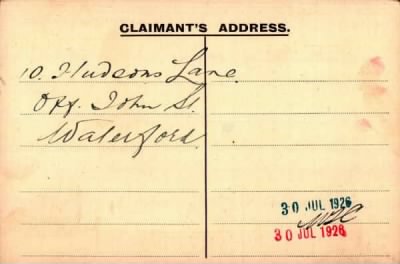 CLAIMANT'S ADDRESS.
10. Hudsons Lane.
Off. John St.
Waterford.
30 JUL 1926
30 JUL 1926